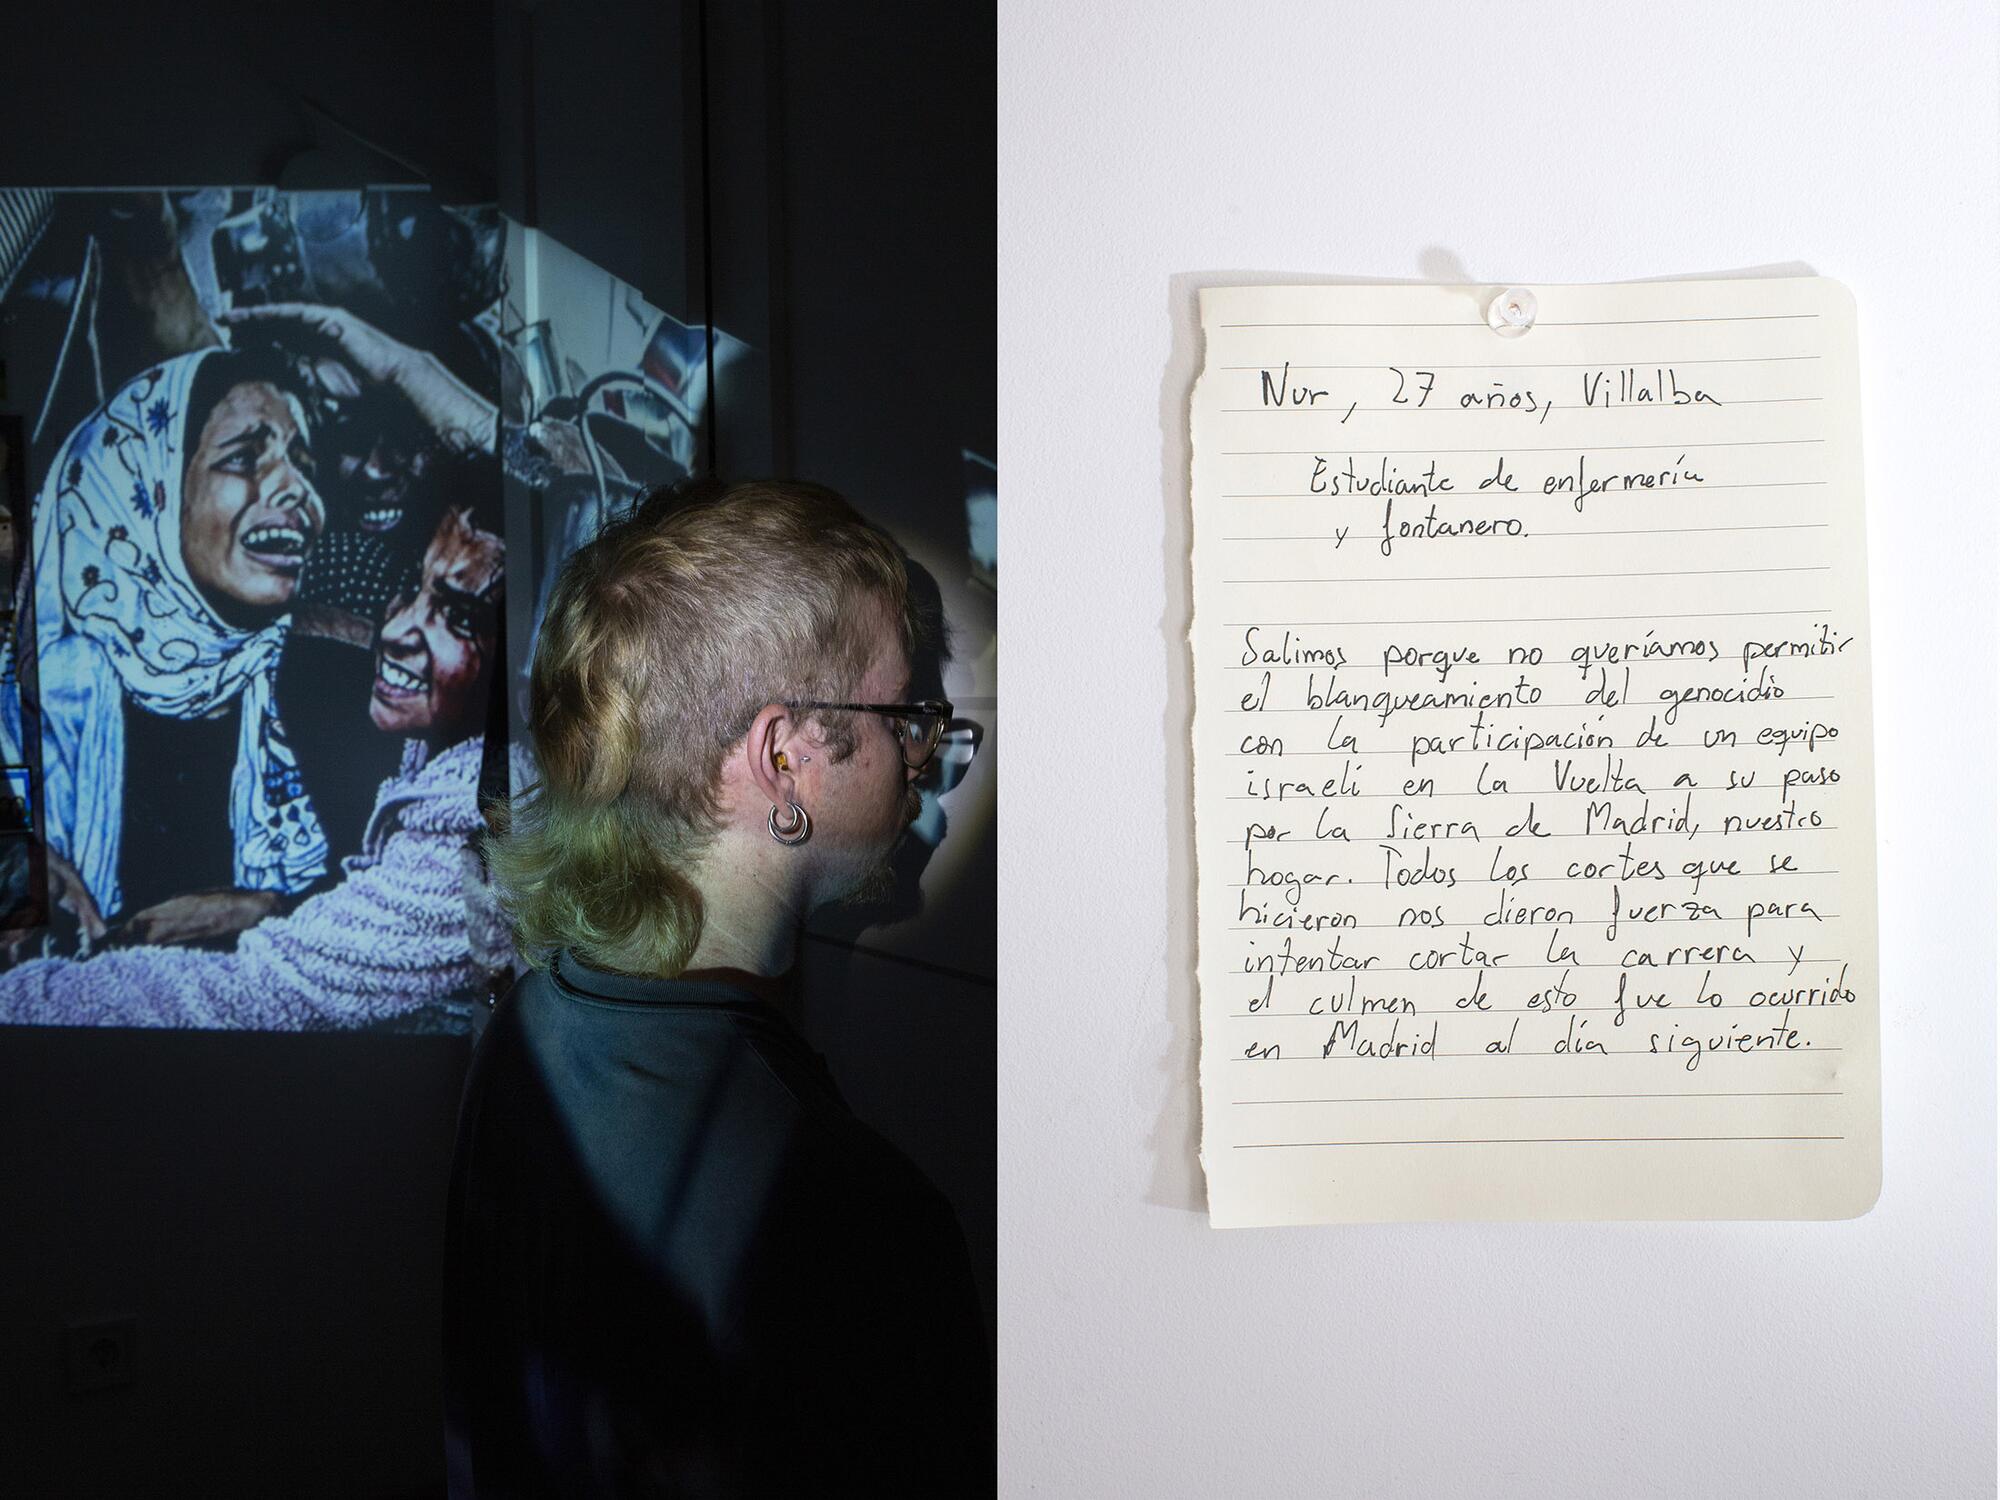 Nur, 27 años, Villalba
Estudiante de enfermería
y fontanero.
Salimos porque no queríamos permitir
el blanqueamiento del genocidio
con la participación de un equipo
israelí en la Vuelta a su paso
por la Sierra de Madrid, nuestro
hogar. Todos los cortes que se
hicieron nos dieron fuerza para
intentar cortar la carrera y
el culmen de esto fue lo ocurrido
en Madrid al día siguiente.